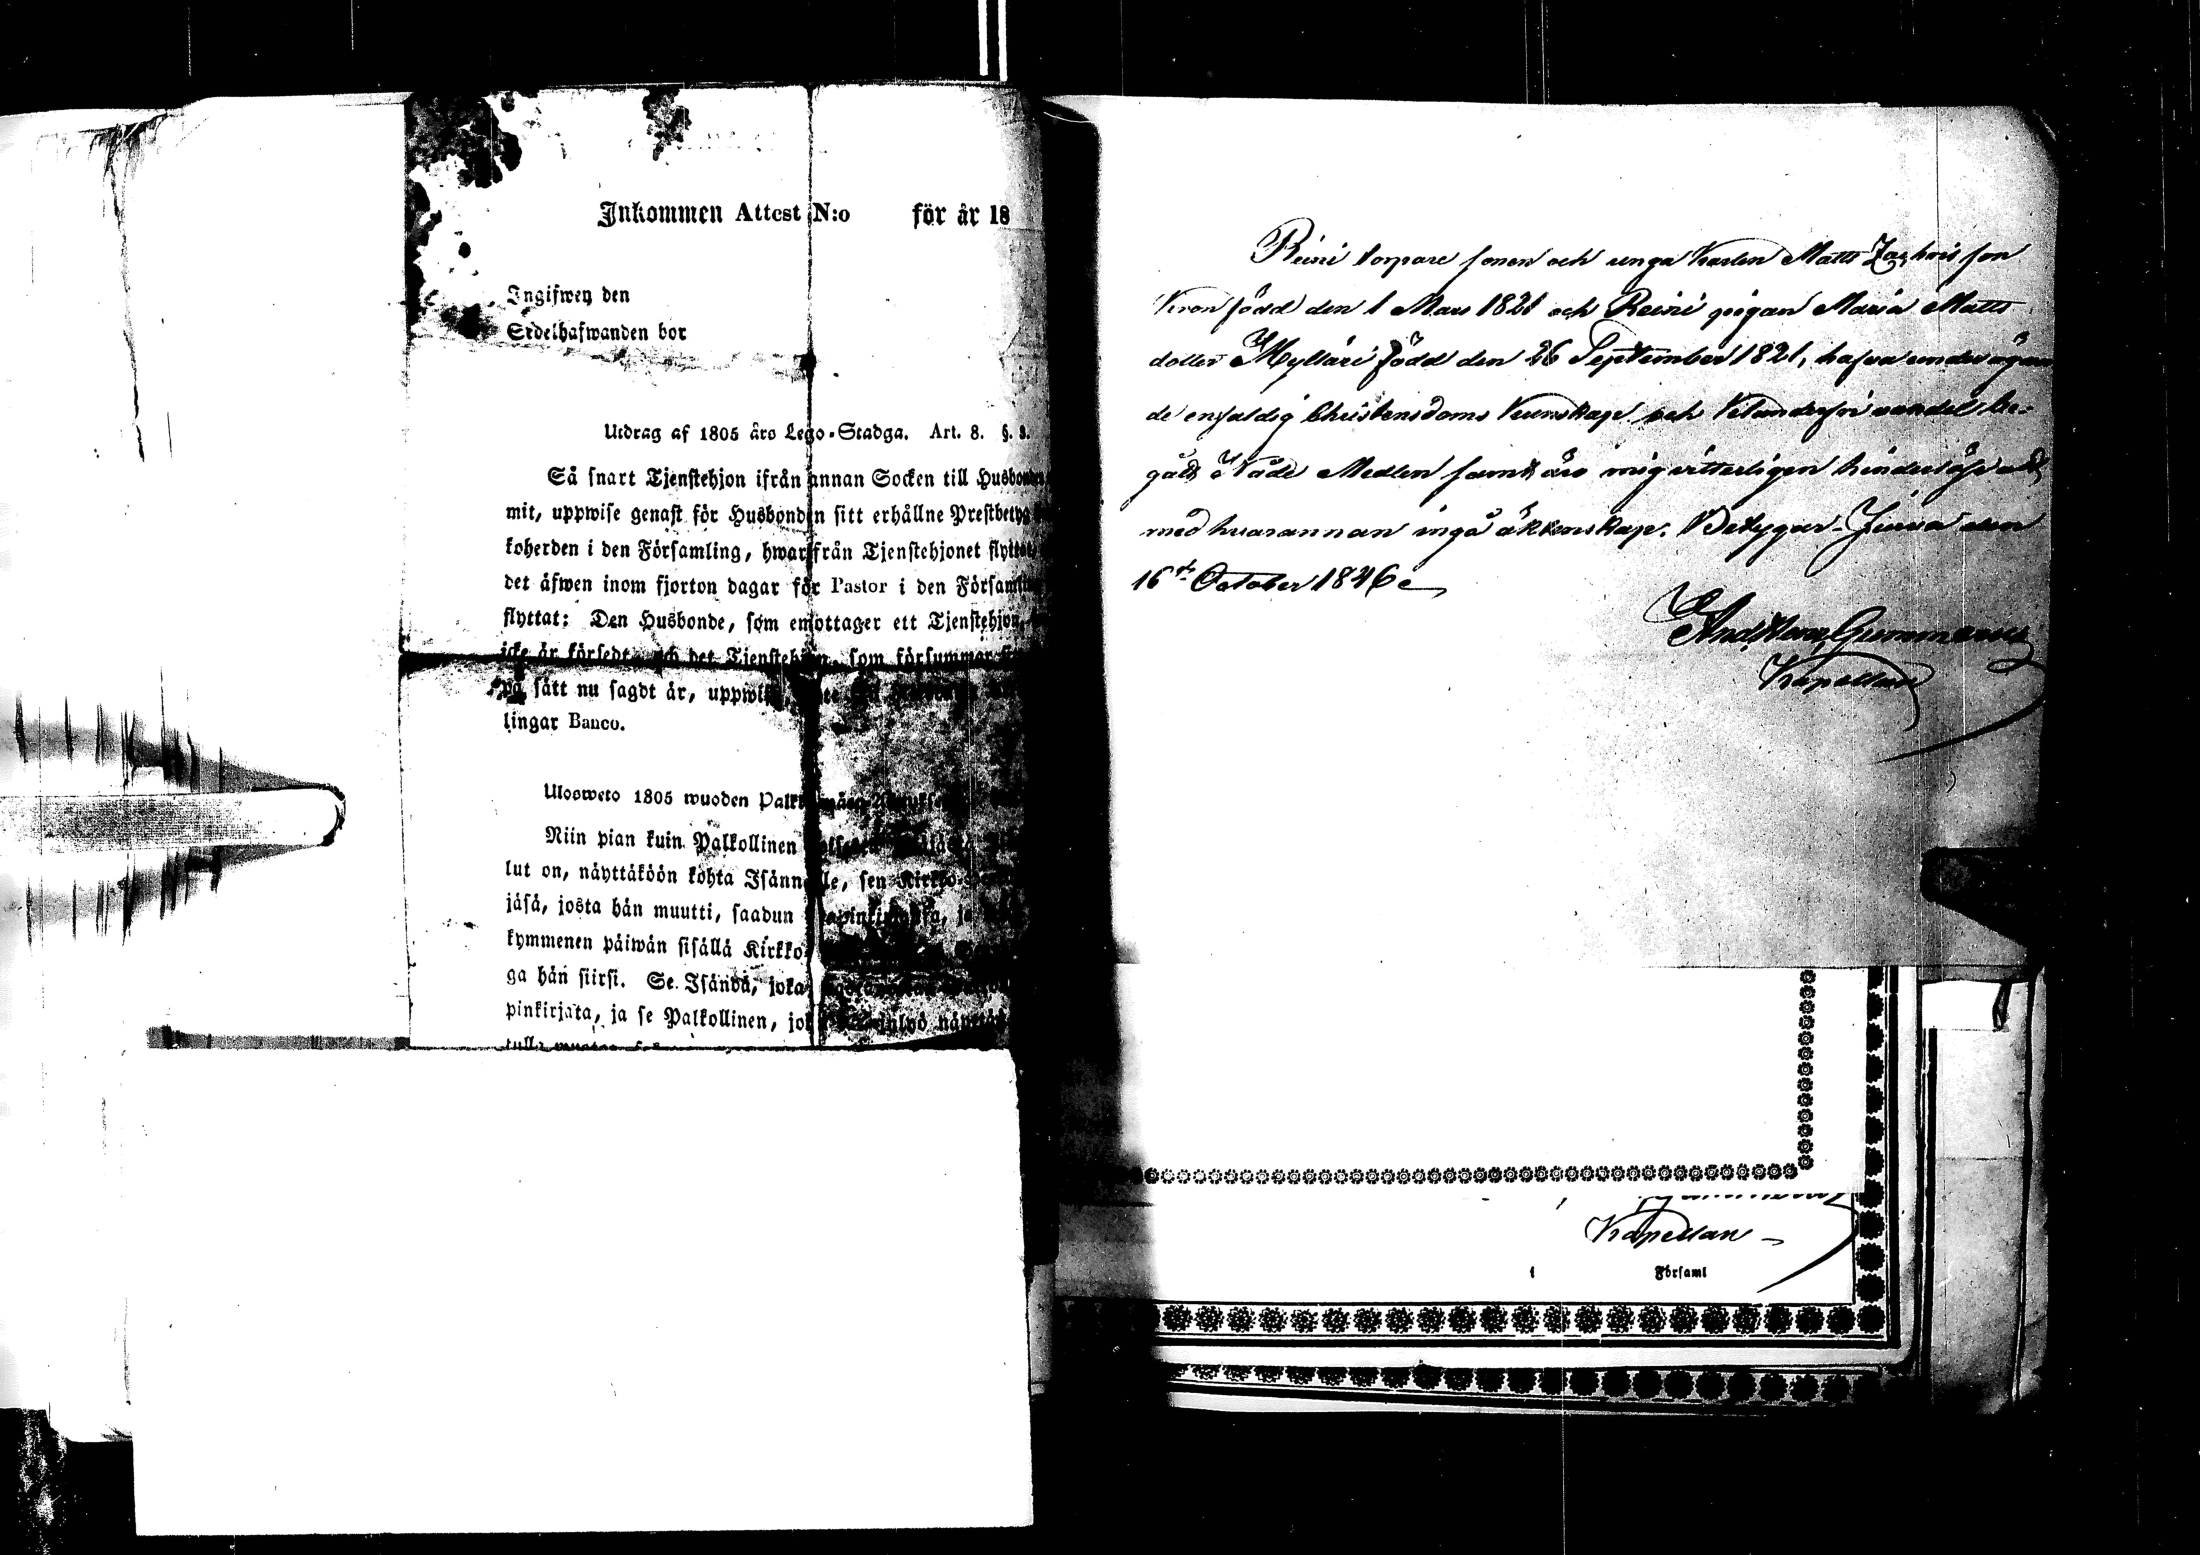 Inkommen Attest N:o för år 18
Ingifwen den
Erdelhafwanden bor
Utdrag af 1805 års Lego-Stadga. Art. 8. §. 3.
Så snart Tjenstehjon ifrån annan Socken till Husbonden
mit, uppwise genast för Husbonden sitt erhållne Prestbetyg
koherden i den Församling, hwarifrån Tjenstehjonet flyttat
det äfwen inom fjorton dagar för Pastor i den Församling
flyttat: Den Husbonde, som emottager ett Tjenstehjon,
icke är försedt, och det Tjenstehjon, som försummar
på sätt nu sagdt är, uppwisa
lingar Banco.
Ulosweto 1805 wuoden
Niin pian kuin Palkollinen
lut on, näyttäköön kohta Isännälle, sen Kirkko
jäsä, josta hän muutti, saadun
kymmenen päiwän sisällä Kirkko
ga hän siirsi. Se Isändä, joka
pinkirjata, ja se Palkollinen,
Reini torpare sonen och unga Karlen Matts Zachris son
Kron född den 1 Mars 1821 och Reini pigan Maria Matts
dotter Myllari född den 26 September 1821, hafva
de enfaldig Christendoms Kunskap och vandel be-
gått Nåde Medlen samt äro mig vitterligen hinderlöse att
med hvarannan ingå äktenskap. Betygar Jäms den
16de October 1846
Gummerus
Kapellan
Kapellan
i Församl